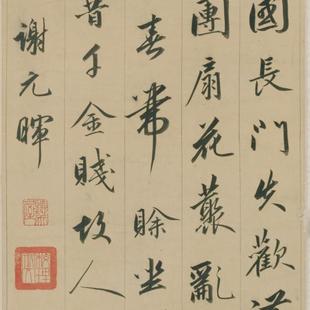 國長門失歡
團扇花叢亂
春帶賒坐
昔千金賤故人
謝元暉